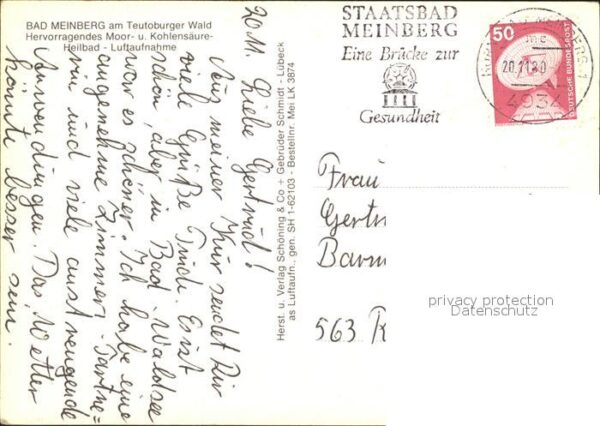 BAD MEINBERG am Teutoburger Wald
Hervorragendes Moor- u. Kohlensäure-
Heilbad - Luftaufnahme
20.11. Liebe Gertrud!
Aus meiner Kur sendet Dir
viele Grüße Trudi. Es ist
schön, aber in Bad Waldsee
war es schöner. Ich habe eine
angenehme Zimmer-Partne=
rin und viele anstrengende
Anwendungen. Das Wetter
könnte besser sein.
Herst. u. Verlag Schöning & Co + Gebrüder Schmidt - Lübeck
as Luftaufn. gen. SH 1-62103 - Bestellnr. Mei LK 3874
STAATSBAD
MEINBERG
Eine Brücke zur
Gesundheit
20.11.80
4934
50
DEUTSCHE BUNDESPOST
Frau
Gertr
Barm
563 R
privacy protection
Datenschutz